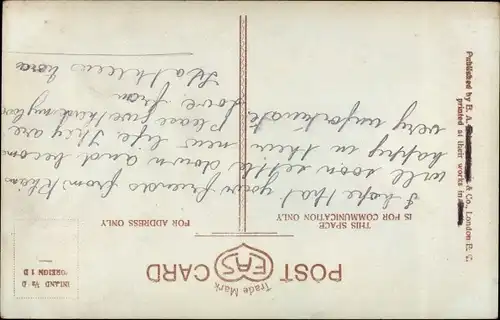 POST CARD
Trade Mark
FAS
THIS SPACE
IS FOR COMMUNICATION ONLY
FOR ADDRESS ONLY
INLAND ½ D
FOREIGN 1 D
Published by E. A. & Co., London E. C.
printed at their works in
I hope that your friends from
will soon settle down and become
happy in their new life. They are
very unfortunate.
Please give them my love
Love from
Kathleen